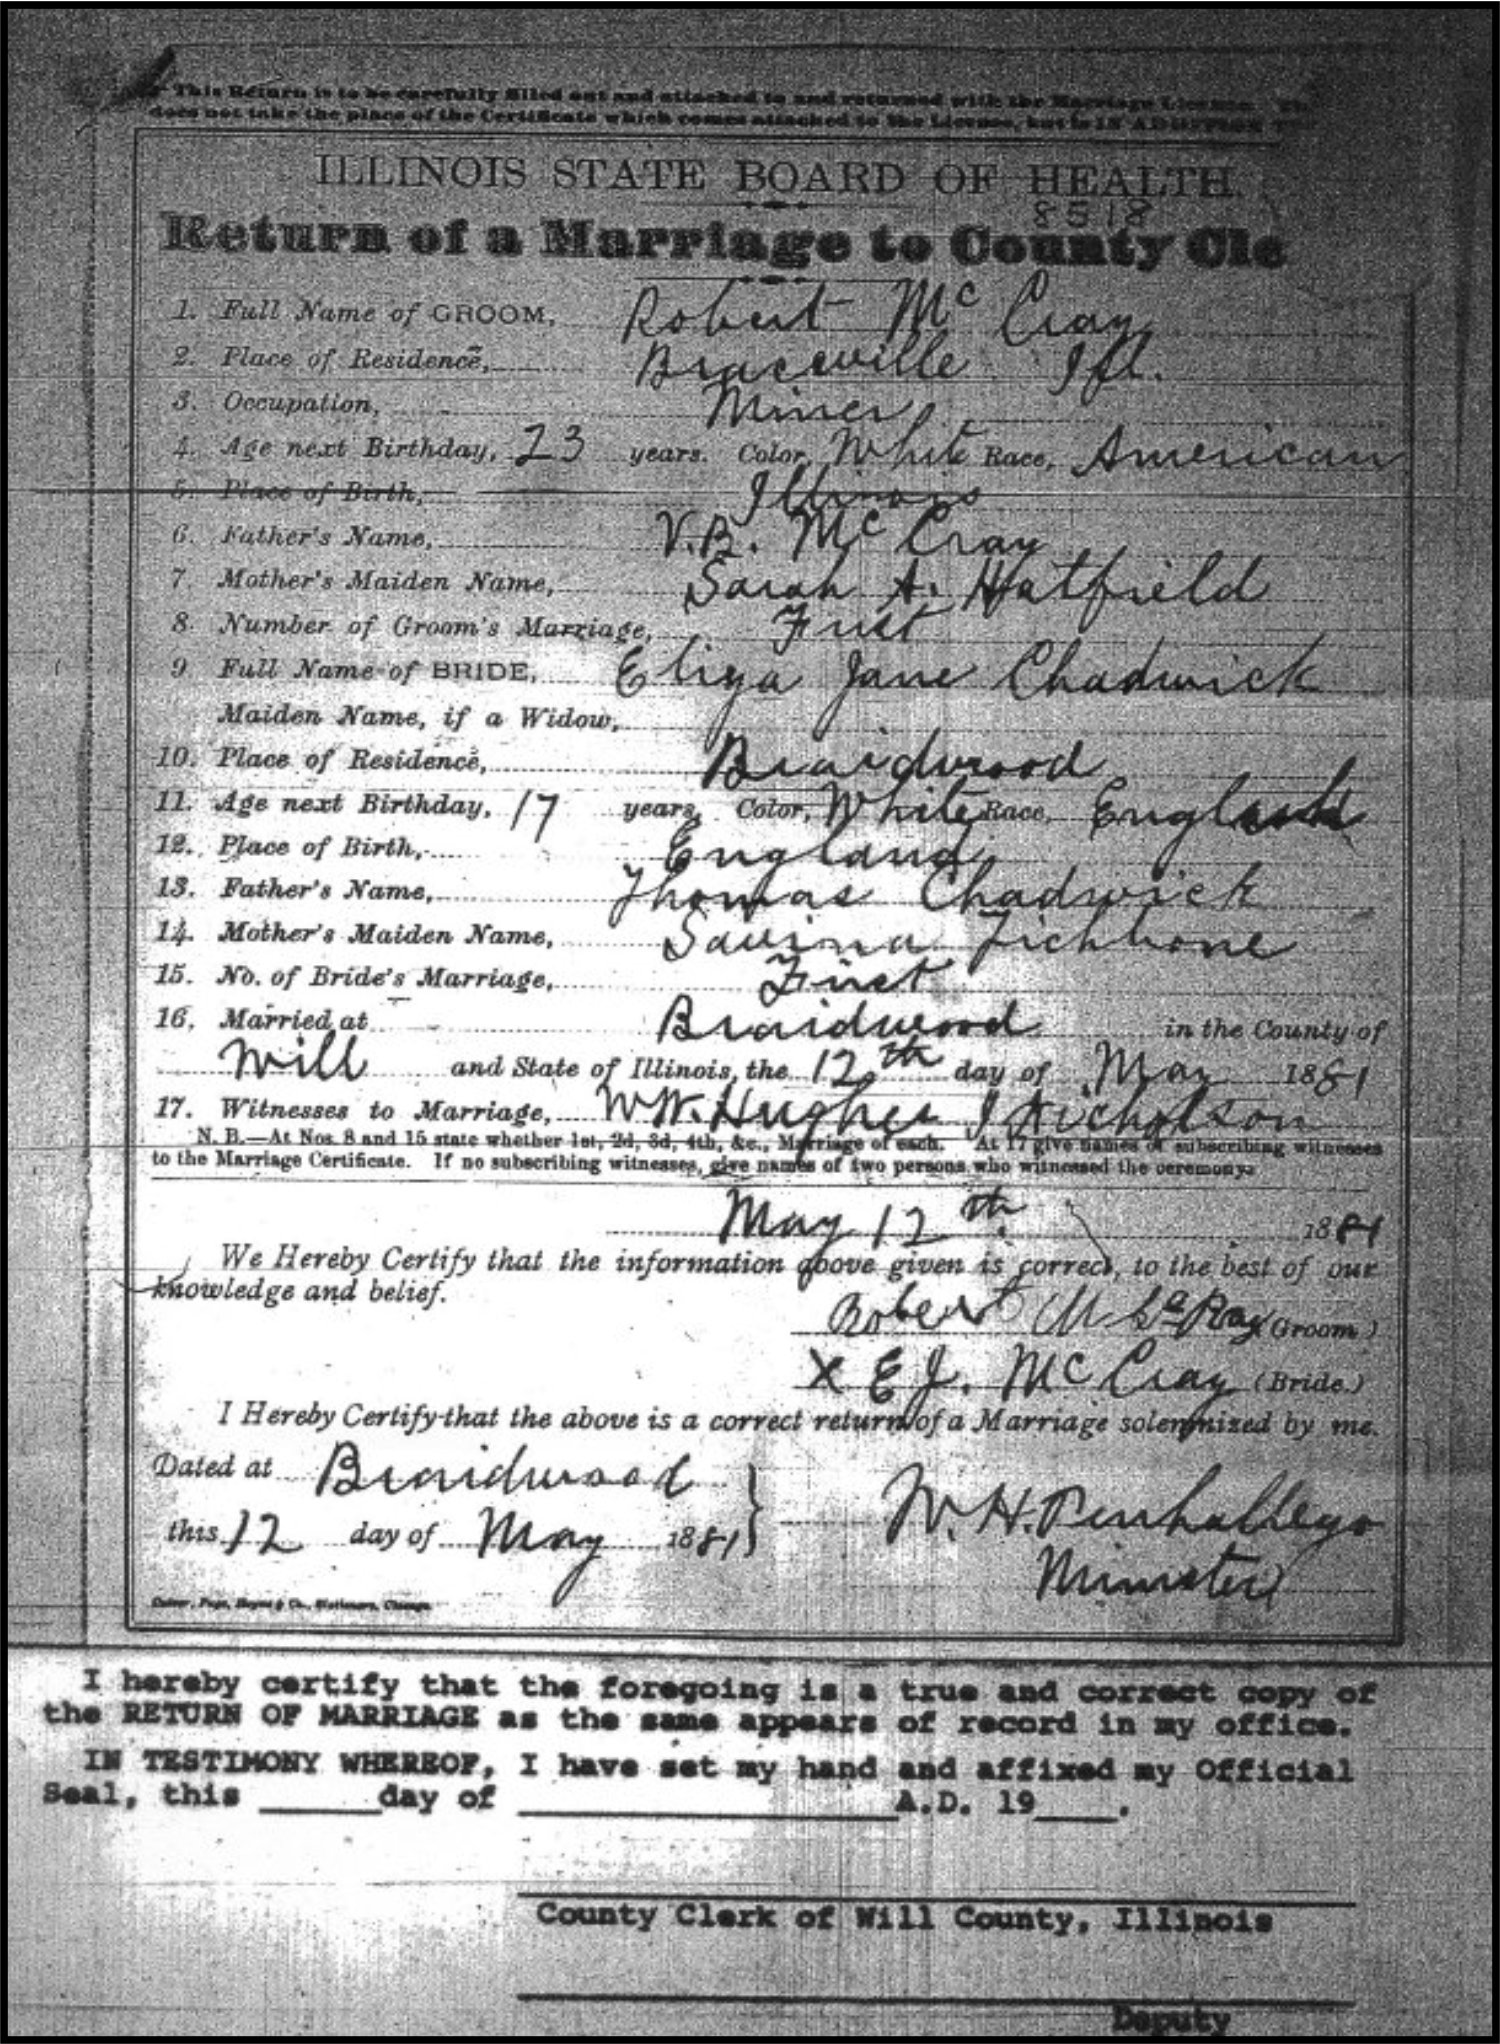 This Return is to be carefully filled out and attached to and returned with the Marriage License.
does not take the place of the Certificate which comes attached to the License, but is IN ADDITION
ILLINOIS STATE BOARD OF HEALTH
8518
Return of a Marriage to County Cle
1. Full Name of GROOM, Robert Mc Cray
2. Place of Residence, Braceville Ill.
3. Occupation, Miner
4. Age next Birthday, 23 years. Color, White Race, American
5. Place of Birth, Illinois
6. Father's Name, V.B. Mc Cray
7. Mother's Maiden Name, Sarah A. Hatfield
8. Number of Groom's Marriage, First
9 Full Name of BRIDE, Eliza Jane Chadwick
Maiden Name, if a Widow,
10. Place of Residence, Braidwood
11. Age next Birthday, 17 years, Color, White Race,
12. Place of Birth, England
13. Father's Name, Thomas Chadwick
14. Mother's Maiden Name, Savina Tichbone
15. No. of Bride's Marriage, First
16. Married at Braidwood in the County of
Will and State of Illinois, the 12th day of May 1881
17. Witnesses to Marriage, W W. Hughes J Nicholson
N. B.—At Nos. 8 and 15 state whether 1st, 2d, 3d, 4th, &c., Marriage of each. At 17 give names of subscribing witnesses
to the Marriage Certificate. If no subscribing witnesses, give names of two persons who witnessed the ceremony.
May 12th 1881
We Hereby Certify that the information above given is correct, to the best of our
knowledge and belief.
Robert (Groom.)
X E J. Mc Cray (Bride.)
I Hereby Certify that the above is a correct return of a Marriage solemnized by me.
Dated at Braidwood
this 12 day of May 1881
W. H. Penhallego
Minister
Culver, Page, Hoyne & Co., Stationers, Chicago.
I hereby certify that the foregoing is a true and correct copy of
the RETURN OF MARRIAGE as the same appears of record in my office.
IN TESTIMONY WHEREOF, I have set my hand and affixed my Official
Seal, this ______day of ____________________A.D. 19____.
County Clerk of Will County, Illinois
Deputy